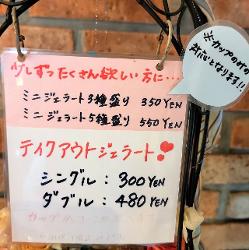 少しずつたくさん欲しい方に・・・
ミニジェラート3種盛り 350YEN
ミニジェラート5種盛り 550YEN
テイクアウトジェラート
シングル：300YEN
ダブル：480YEN
※カップのみの
対応となります!!